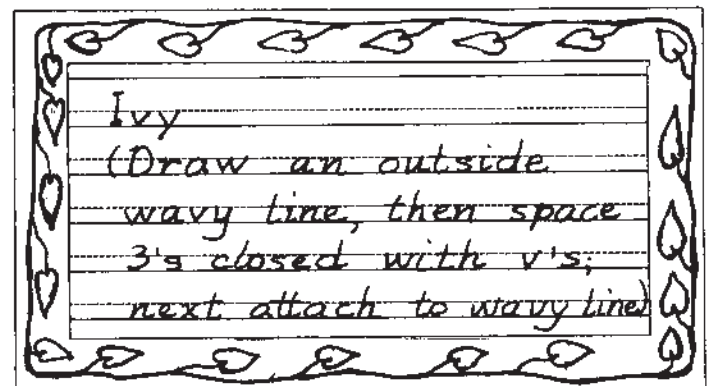 Ivy
(Draw an outside
wavy line, then space
3's closed with v's;
next attach to wavy line)